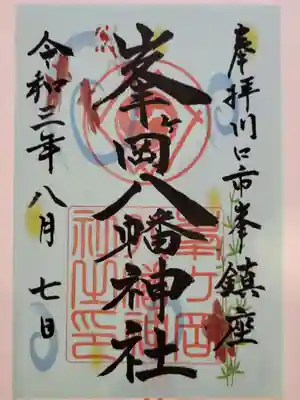 奉拝川口市峯鎮座
峯ヶ岡八幡神社
令和三年八月七日
峯ヶ岡
八幡神
社之印